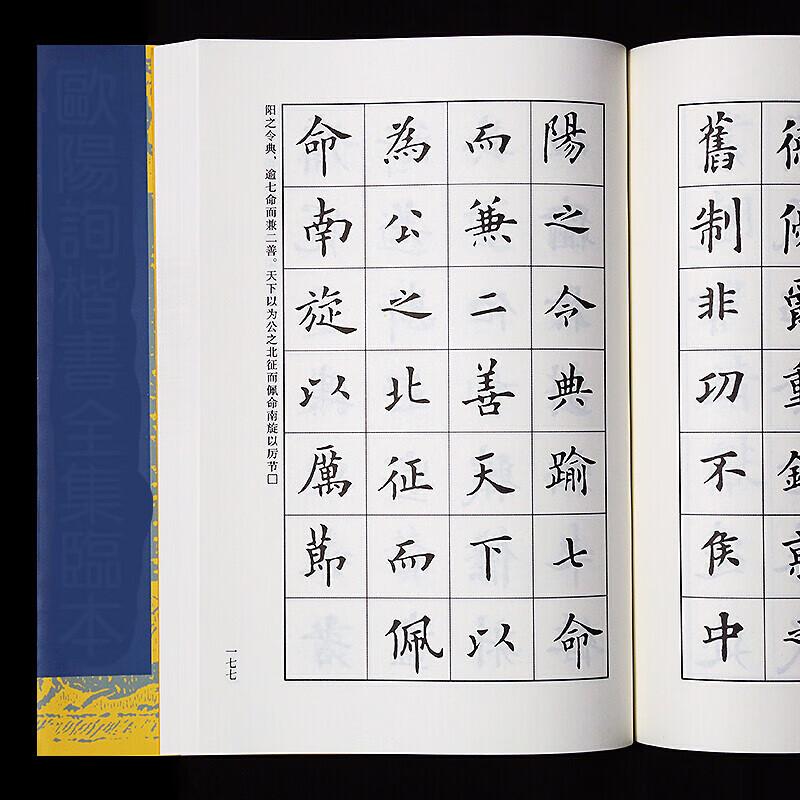 舊制非功不侯中
陽之令典踰七命
而兼二善天下以
為公之北征而佩
命南旋以厲節
阳之令典、逾七命而兼二善。天下以为公之北征而佩命南旋以厉节□
一七七
歐陽詢楷書大全集臨本